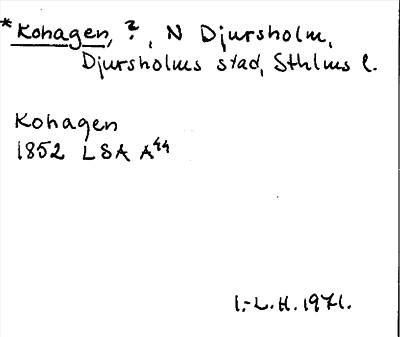 *Kohagen, ?, N Djursholm,
Djursholms stad, Sthlms l.
Kohagen
1852 LSA A44
I.-L.H. 1971.